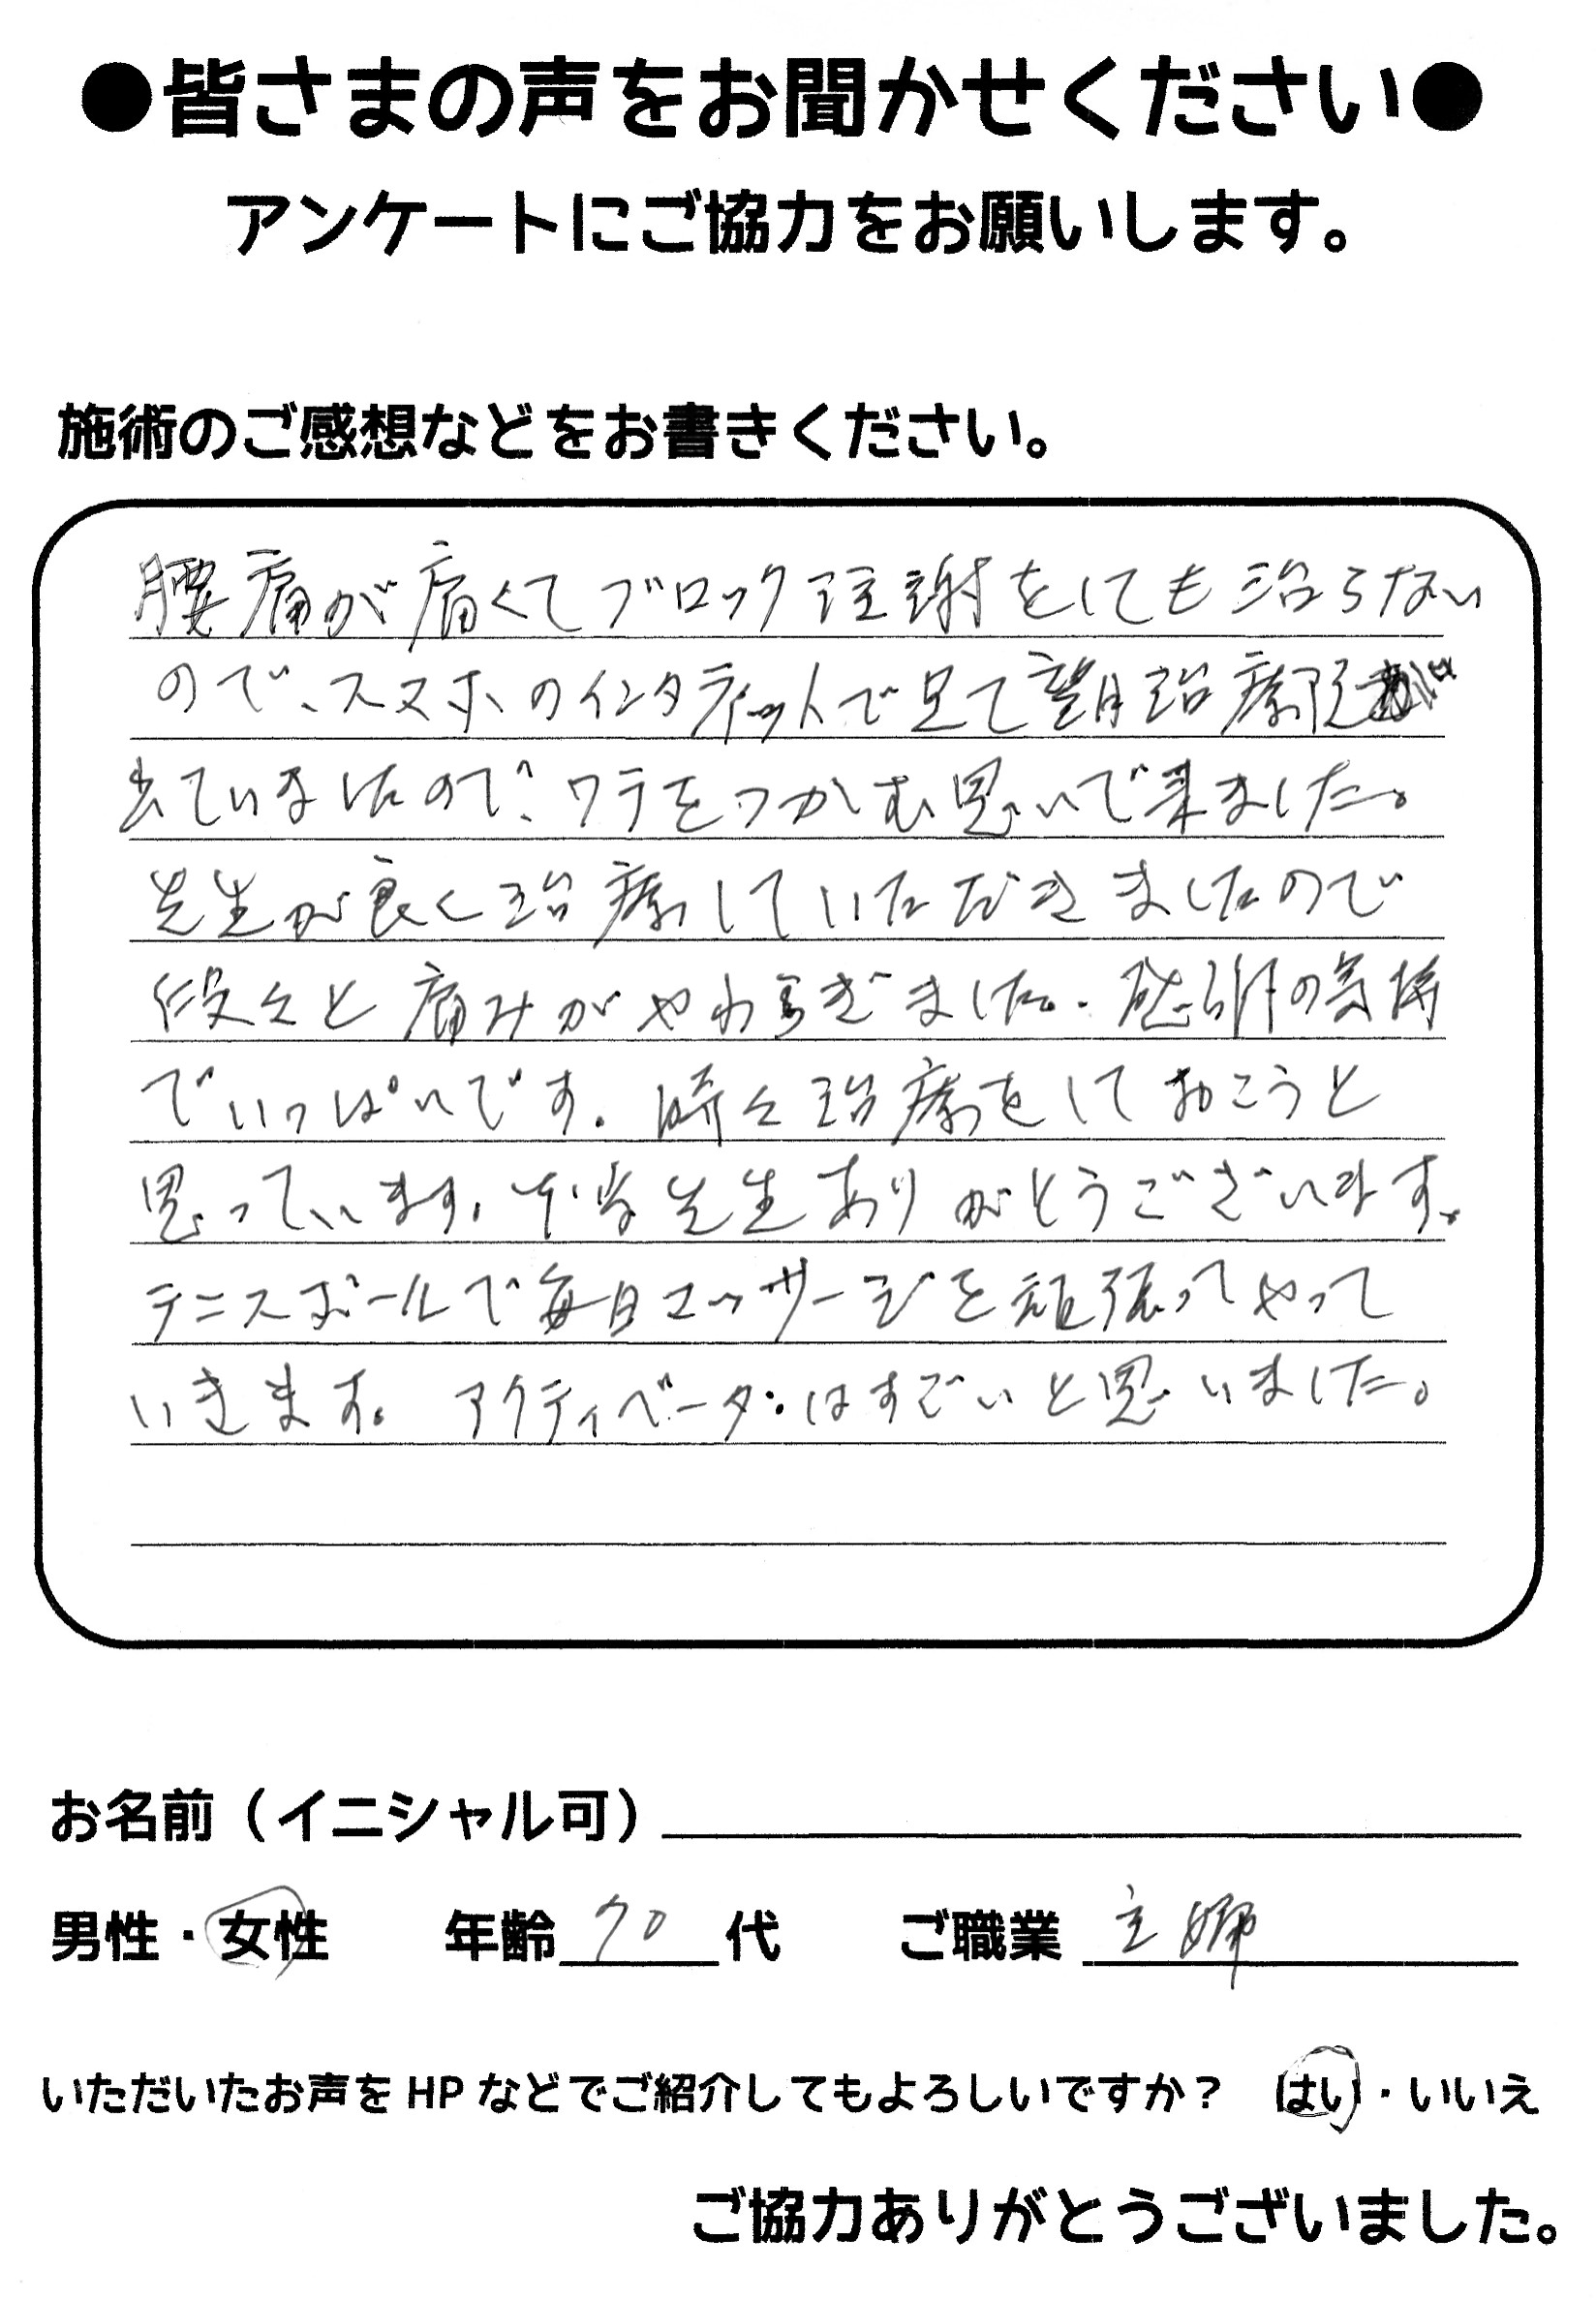 ●皆さまの声をお聞かせください●
アンケートにご協力をお願いします。
施術のご感想などをお書きください。
腰痛が痛くてブロック注射をしても治らない
ので、スマホのインタネットで見て望月治療院が
出ていましたので、ワラをつかむ思いで来ました。
先生が良く治療していただきましたので
段々と痛みがやわらぎました。感謝の気持
でいっぱいです。時々治療をしておこうと
思っています。本当先生ありがとうございます。
テニスボールで毎日マッサージを頑張ってやって
いきます。アクティベータはすごいと思いました。
お名前（イニシャル可）
男性・女性 年齢 70 代 ご職業 主婦
いただいたお声をHPなどでご紹介してもよろしいですか？ はい・いいえ
ご協力ありがとうございました。